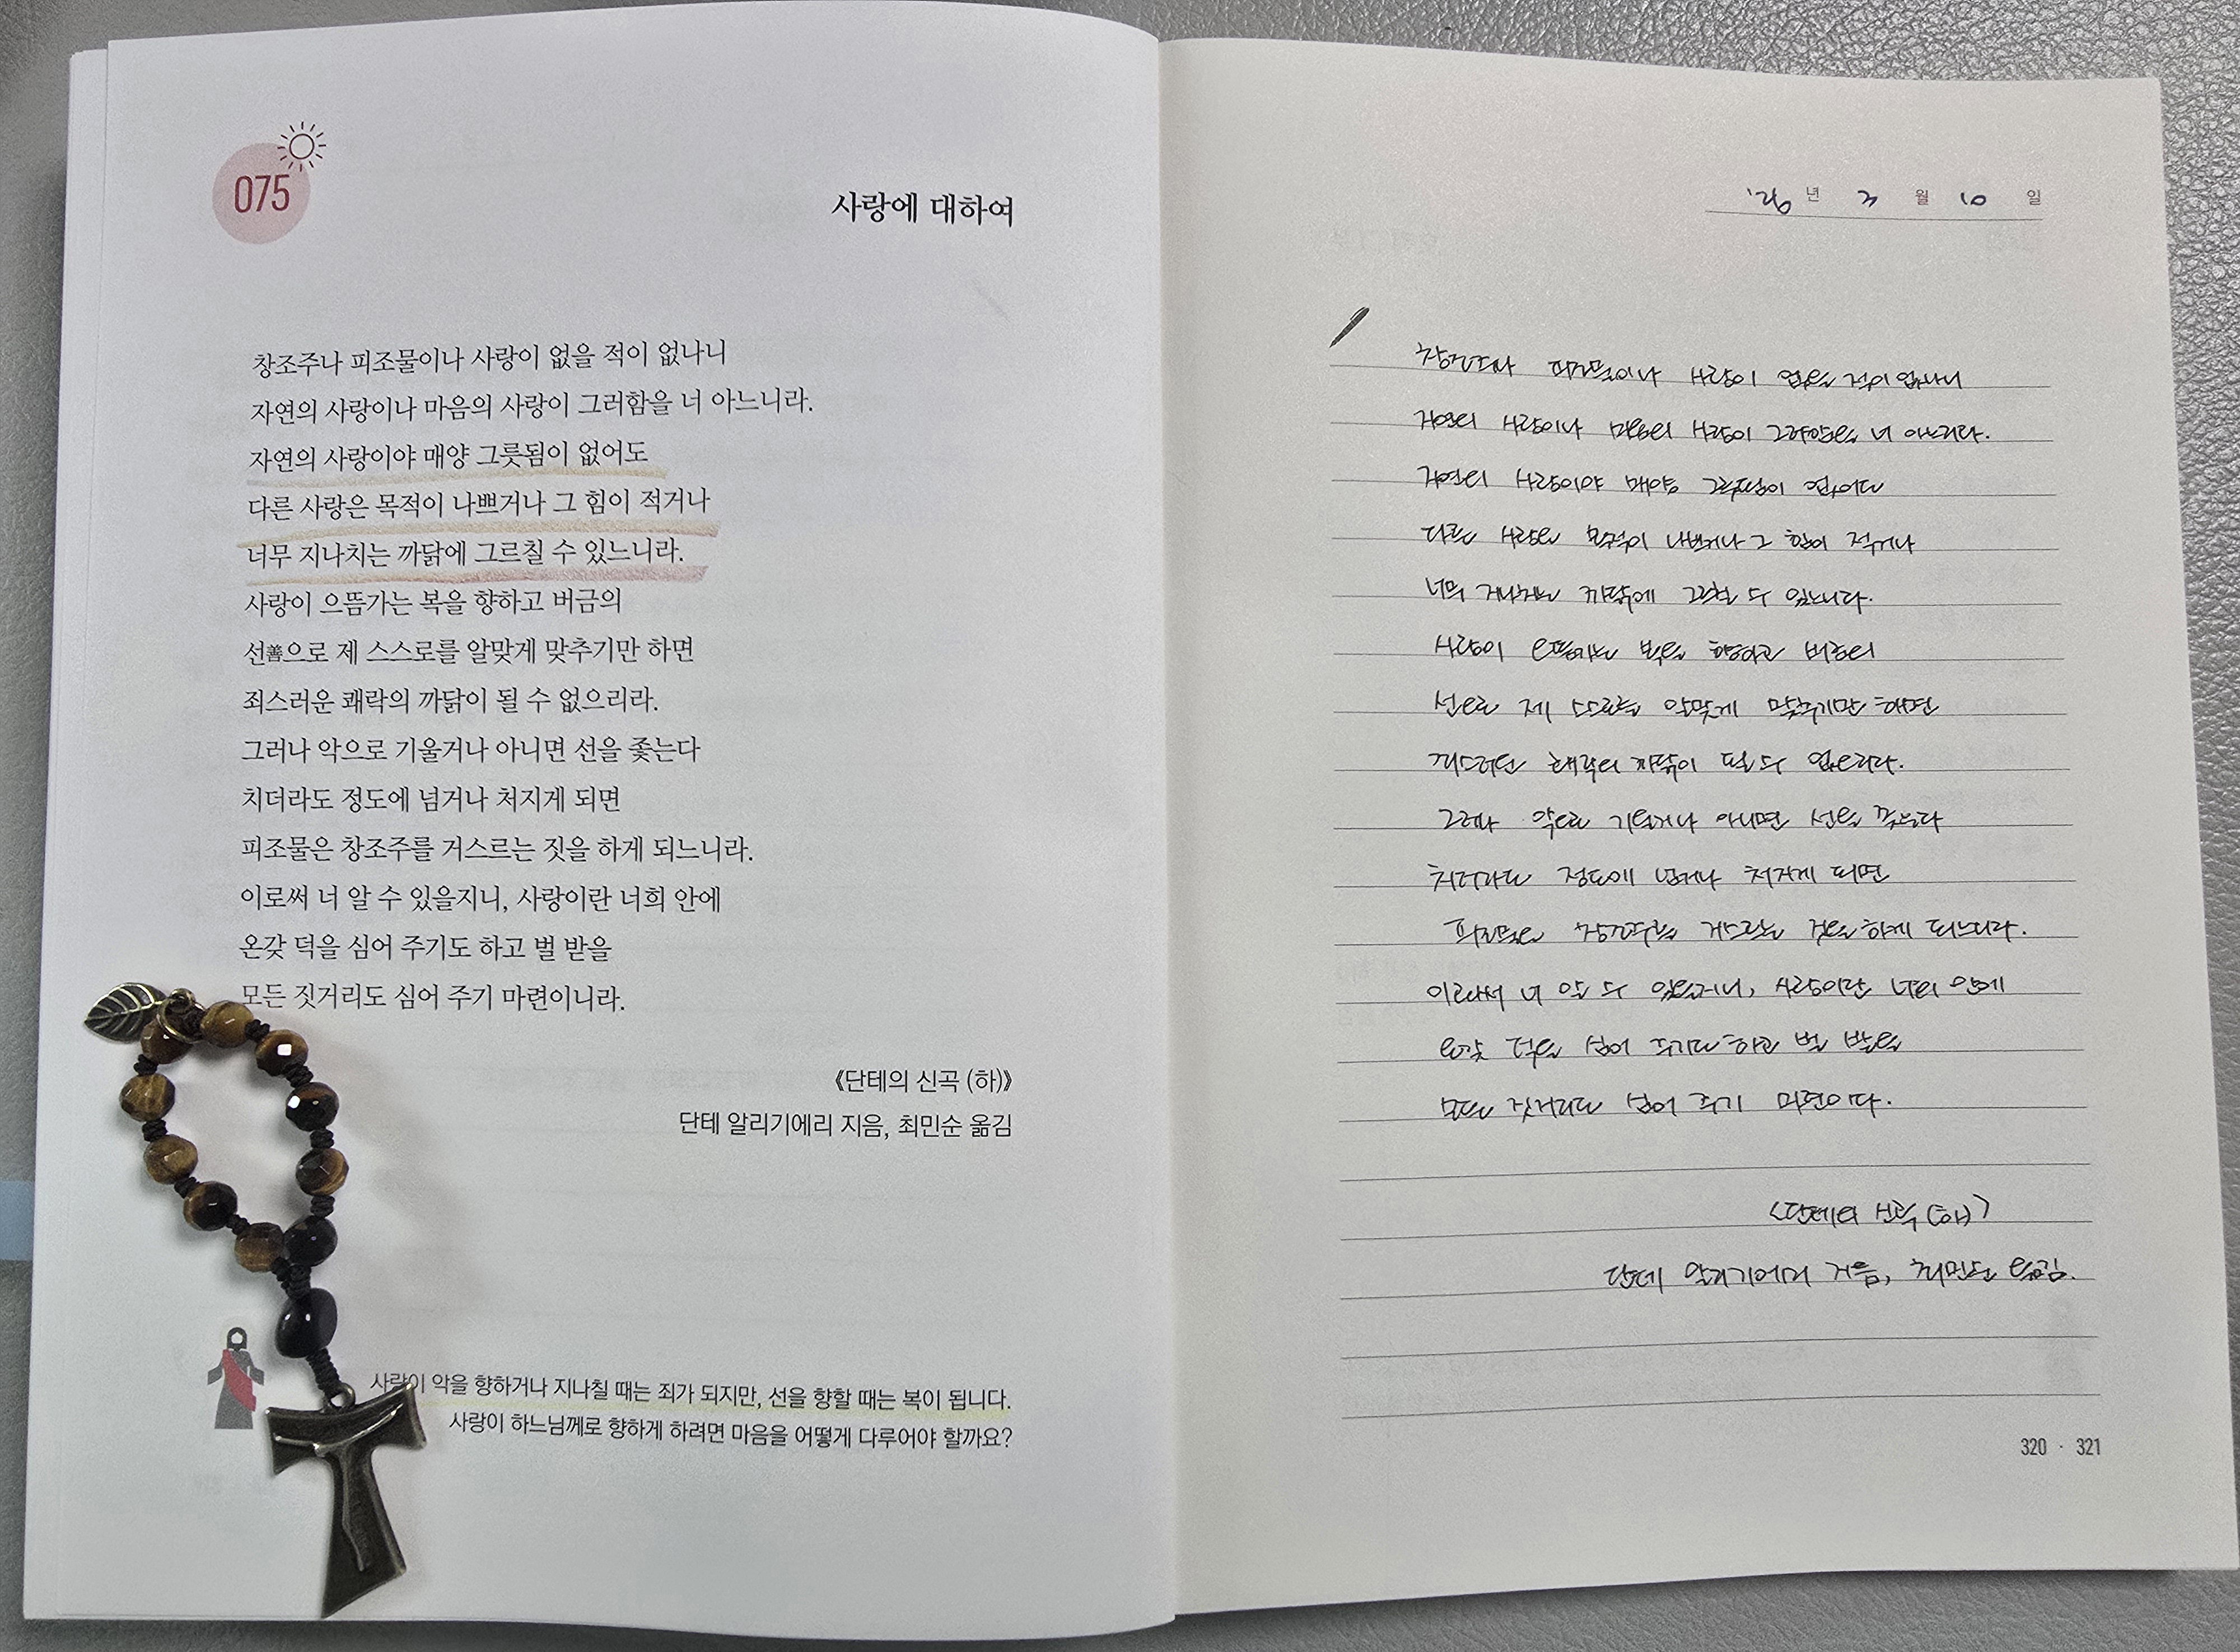 075
사랑에 대하여
창조주나 피조물이나 사랑이 없을 적이 없나니
자연의 사랑이나 마음의 사랑이 그러함을 너 아느니라.
자연의 사랑이야 매양 그릇됨이 없어도
다른 사랑은 목적이 나쁘거나 그 힘이 적거나
너무 지나치는 까닭에 그르칠 수 있느니라.
사랑이 으뜸가는 복을 향하고 버금의
선善으로 제 스스로를 알맞게 맞추기만 하면
죄스러운 쾌락의 까닭이 될 수 없으리라.
그러나 악으로 기울거나 아니면 선을 좇는다
치더라도 정도에 넘거나 처지게 되면
피조물은 창조주를 거스르는 짓을 하게 되느니라.
이로써 너 알 수 있을지니, 사랑이란 너희 안에
온갖 덕을 심어 주기도 하고 벌 받을
모든 짓거리도 심어 주기 마련이니라.
《단테의 신곡 (하)》
단테 알리기에리 지음, 최민순 옮김
사랑이 악을 향하거나 지나칠 때는 죄가 되지만, 선을 향할 때는 복이 됩니다.
사랑이 하느님께로 향하게 하려면 마음을 어떻게 다루어야 할까요?
'26 년 3 월 10 일
창조주나 피조물이나 사랑이 없을 적이 없나니
자연의 사랑이나 마음의 사랑이 그러함을 너 아느니라.
자연의 사랑이야 매양 그릇됨이 없어도
다른 사랑은 목적이 나쁘거나 그 힘이 적거나
너무 지나치는 까닭에 그르칠 수 있느니라.
사랑이 으뜸가는 복을 향하고 버금의
선으로 제 스스로를 알맞게 맞추기만 하면
죄스러운 쾌락의 까닭이 될 수 없으리라.
그러나 악으로 기울거나 아니면 선을 좇는다
치더라도 정도에 넘거나 처지게 되면
피조물은 창조주를 거스르는 짓을 하게 되느니라.
이로써 너 알 수 있을지니, 사랑이란 너희 안에
온갖 덕을 심어 주기도 하고 벌 받을
모든 짓거리도 심어 주기 마련이다.
<단테의 신곡 (하)>
단테 알리기에리 지음, 최민순 옮김.
320 · 321